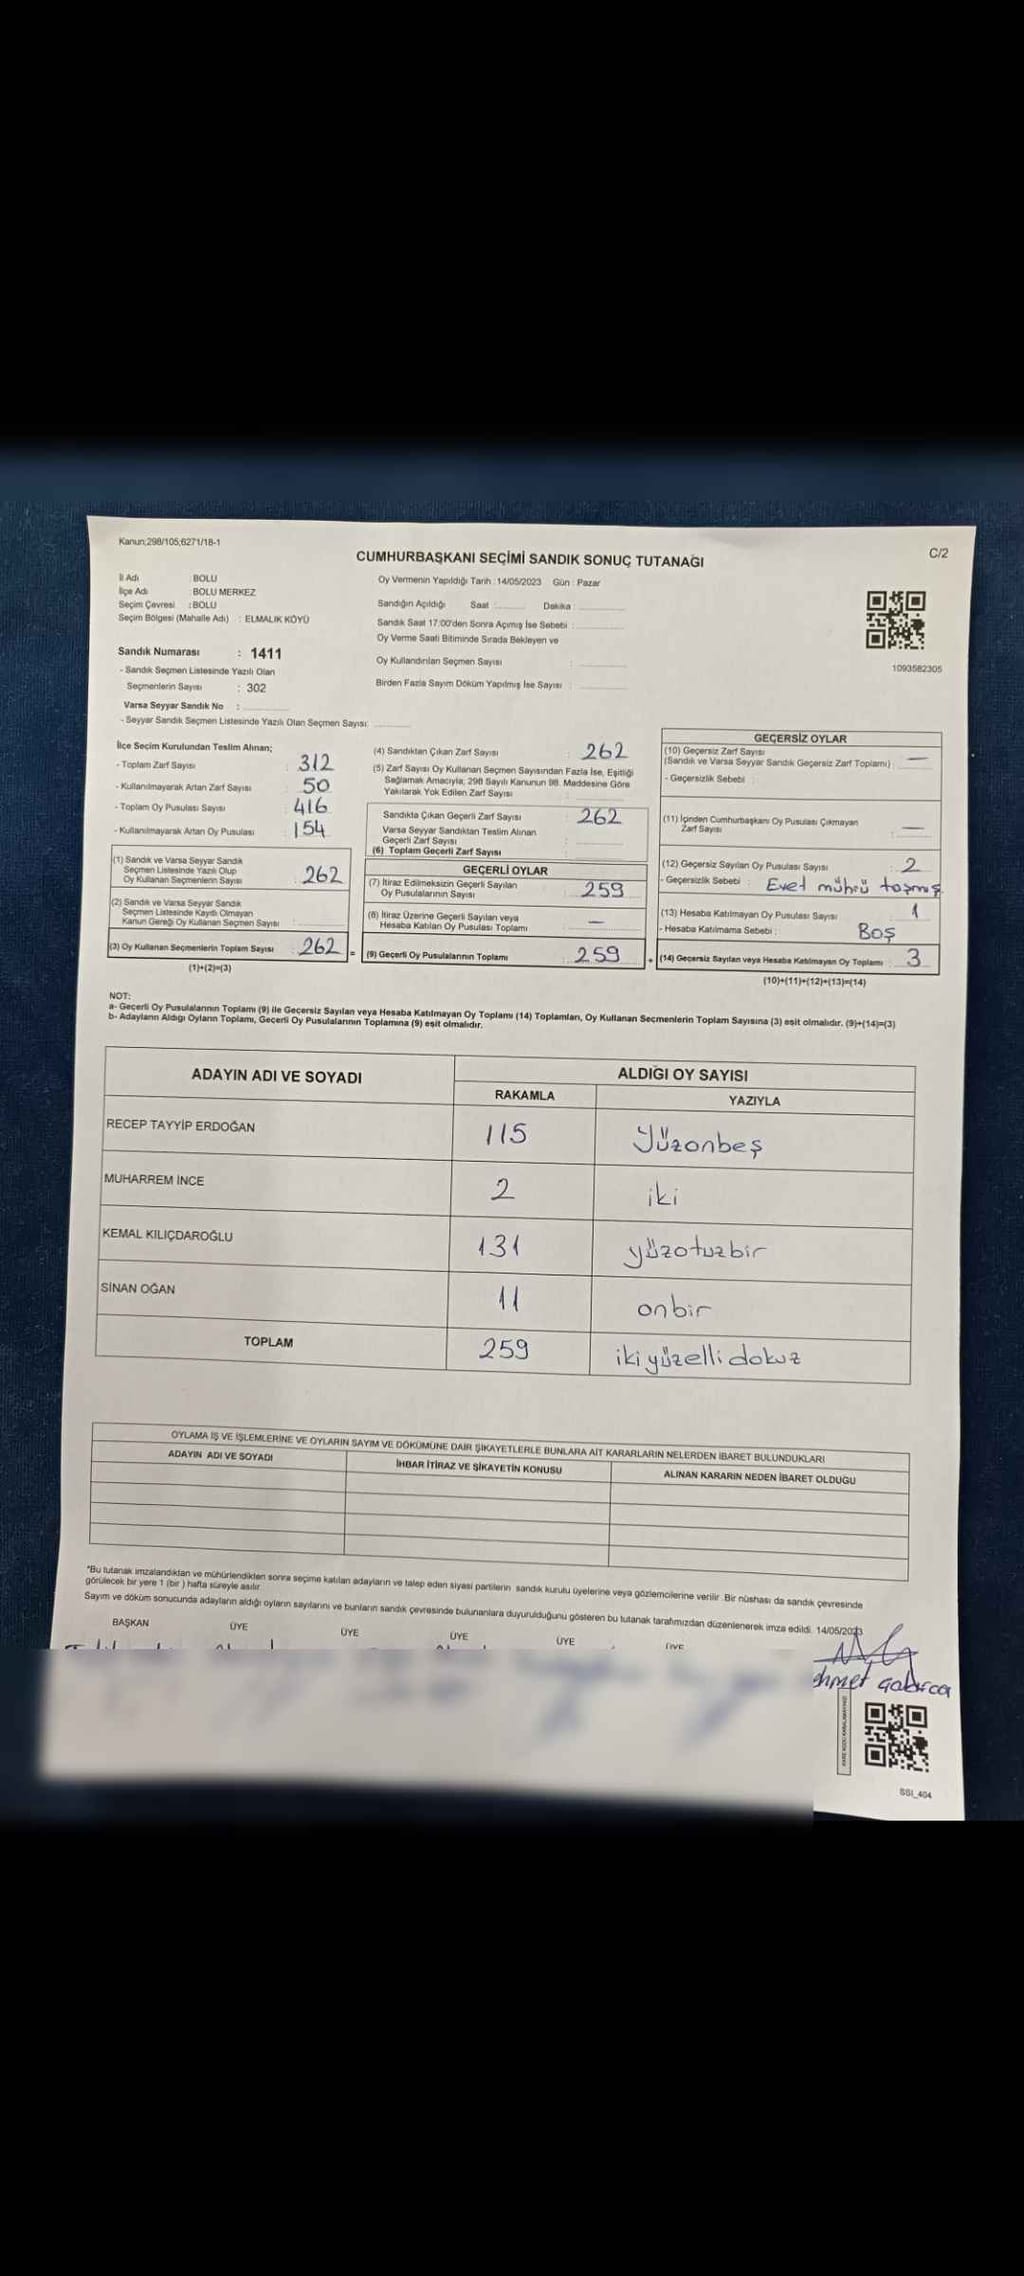 Kanun;298/105;6271/18-1
CUMHURBAŞKANI SEÇİMİ SANDIK SONUÇ TUTANAĞI
C/2
İl Adı : BOLU
İlçe Adı : BOLU MERKEZ
Seçim Çevresi : BOLU
Seçim Bölgesi (Mahalle Adı) : ELMALIK KÖYÜ
Sandık Numarası : 1411
- Sandık Seçmen Listesinde Yazılı Olan
Seçmenlerin Sayısı : 302
Varsa Seyyar Sandık No :
- Seyyar Sandık Seçmen Listesinde Yazılı Olan Seçmen Sayısı:
Oy Vermenin Yapıldığı Tarih :14/05/2023 Gün : Pazar
Sandığın Açıldığı Saat : Dakika :
Sandık Saat 17:00'den Sonra Açımış İse Sebebi :
Oy Verme Saati Bitiminde Sırada Bekleyen ve
Oy Kullandırılan Seçmen Sayısı :
Birden Fazla Sayım Döküm Yapılmış İse Sayısı :
1093582305
İlçe Seçim Kurulundan Teslim Alınan;
- Toplam Zarf Sayısı : 312
- Kullanılmayarak Artan Zarf Sayısı : 50
- Toplam Oy Pusulası Sayısı : 416
- Kullanılmayarak Artan Oy Pusulası : 154
(1) Sandık ve Varsa Seyyar Sandık
Seçmen Listesinde Yazılı Olup
Oy Kullanan Seçmenlerin Sayısı : 262
(2) Sandık ve Varsa Seyyar Sandık
Seçmen Listesinde Kayıtlı Olmayan
Kanun Gereği Oy Kullanan Seçmen Sayısı :
(3) Oy Kullanan Seçmenlerin Toplam Sayısı : 262 =
(1)+(2)=(3)
(4) Sandıktan Çıkan Zarf Sayısı : 262
(5) Zarf Sayısı Oy Kullanan Seçmen Sayısından Fazla İse, Eşitliği
Sağlamak Amacıyla, 298 Sayılı Kanunun 98. Maddesine Göre
Yakılarak Yok Edilen Zarf Sayısı :
Sandıkta Çıkan Geçerli Zarf Sayısı : 262
Varsa Seyyar Sandıktan Teslim Alınan
Geçerli Zarf Sayısı :
(6) Toplam Geçerli Zarf Sayısı :
GEÇERLİ OYLAR
(7) İtiraz Edilmeksizin Geçerli Sayılan
Oy Pusulalarının Sayısı : 259
(8) İtiraz Üzerine Geçerli Sayılan veya
Hesaba Katılan Oy Pusulası Toplamı : —
(9) Geçerli Oy Pusulalarının Toplamı : 259 +
GEÇERSİZ OYLAR
(10) Geçersiz Zarf Sayısı
(Sandık ve Varsa Seyyar Sandık Geçersiz Zarf Toplamı) : —
- Geçersizlik Sebebi :
(11) İçinden Cumhurbaşkanı Oy Pusulası Çıkmayan
Zarf Sayısı : —
(12) Geçersiz Sayılan Oy Pusulası Sayısı : 2
- Geçersizlik Sebebi : Evet mührü taşmış
(13) Hesaba Katılmayan Oy Pusulası Sayısı : 1
- Hesaba Katılmama Sebebi : BOŞ
(14) Geçersiz Sayılan veya Hesaba Katılmayan Oy Toplamı : 3
(10)+(11)+(12)+(13)=(14)
NOT:
a- Geçerli Oy Pusulalarının Toplamı (9) ile Geçersiz Sayılan veya Hesaba Katılmayan Oy Toplamı (14) Toplamları, Oy Kullanan Seçmenlerin Toplam Sayısına (3) eşit olmalıdır. (9)+(14)=(3)
b- Adayların Aldığı Oyların Toplamı, Geçerli Oy Pusulalarının Toplamına (9) eşit olmalıdır.
ADAYIN ADI VE SOYADI ALDIĞI OY SAYISI
RAKAMLA YAZIYLA
RECEP TAYYİP ERDOĞAN 115 Yüzonbeş
MUHARREM İNCE 2 iki
KEMAL KILIÇDAROĞLU 131 yüzotuzbir
SİNAN OĞAN 11 onbir
TOPLAM 259 ikiyüzellidokuz
OYLAMA İŞ VE İŞLEMLERİNE VE OYLARIN SAYIM VE DÖKÜMÜNE DAİR ŞİKAYETLERLE BUNLARA AİT KARARLARIN NELERDEN İBARET BULUNDUKLARI
ADAYIN ADI VE SOYADI İHBAR İTİRAZ VE ŞİKAYETİN KONUSU ALINAN KARARIN NEDEN İBARET OLDUĞU
*Bu tutanak imzalandıktan ve mühürlendikten sonra seçime katılan adayların ve talep eden siyasi partilerin sandık kurulu üyelerine veya gözlemcilerine verilir. Bir nüshası da sandık çevresinde
görülecek bir yere 1 (bir) hafta süreyle asılır.
Sayım ve döküm sonucunda adayların aldığı oyların sayılarını ve bunların sandık çevresinde bulunanlara duyurulduğunu gösteren bu tutanak tarafımızdan düzenlenerek imza edildi. 14/05/2023
BAŞKAN ÜYE ÜYE ÜYE ÜYE ÜYE
SSI_404